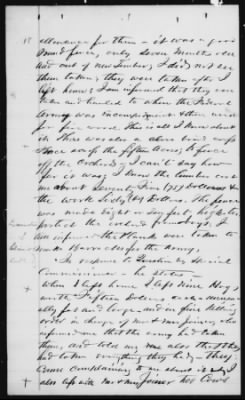 allowance for them - it was a good
fence, only seven months old
and out of new timber; I did not see
them taken; they were taken after I
left home; I am informed that they were
taken and hauled to where the Federal
Army was encamped & then used
for fire wood. This is all I know about
it. There was also a fence
the fifteen acres; A fence
off the Orchard of I can't say how
far it was; I know the lumber cost
me about Seventy five (75) Dollars &
the work Sixty (60) Dollars. The fence
was made high
protect the orchard I
am informed the Plank was taken to
make Barracks for the army.
In response to question by Special
Commissioner - he states -
When I left home I left nine Hogs
worth Fifteen Dollars each
fat and large - and in fine
order in charge of Mr. &amp; Mrs. Joiner, who
informed me that the army had taken
them, and told me also that they
had taken everything they had - they
were complaining to me about it
also left with Mr & Mrs Joiner two Cows